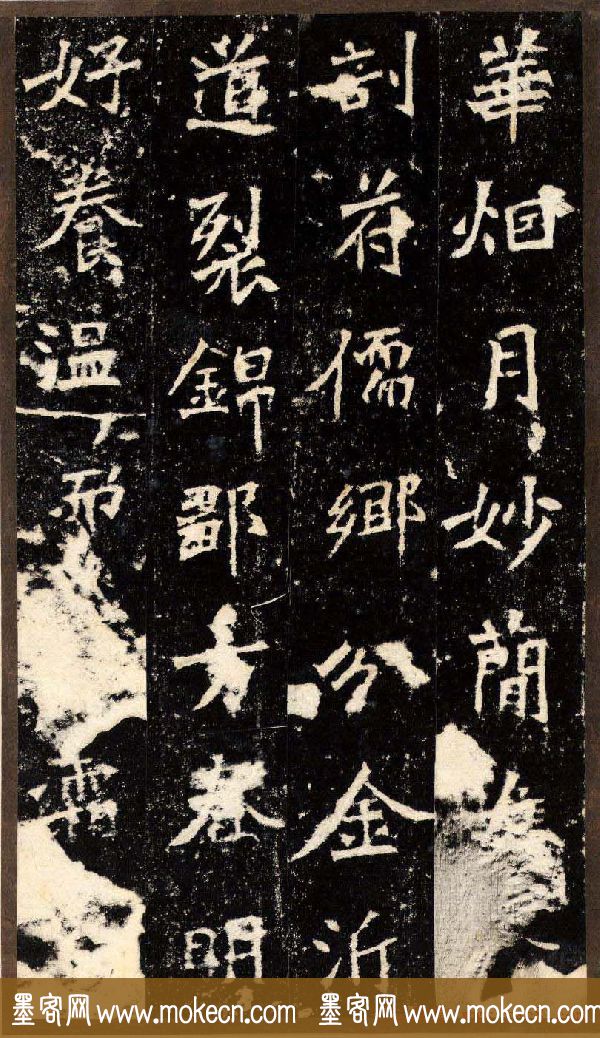 華烟月妙蕳
剖苻儒鄉分金沂
道裂錦鄙方春明
好養温而
墨客网 www.mokecn.com 墨客网 www.mokecn.com